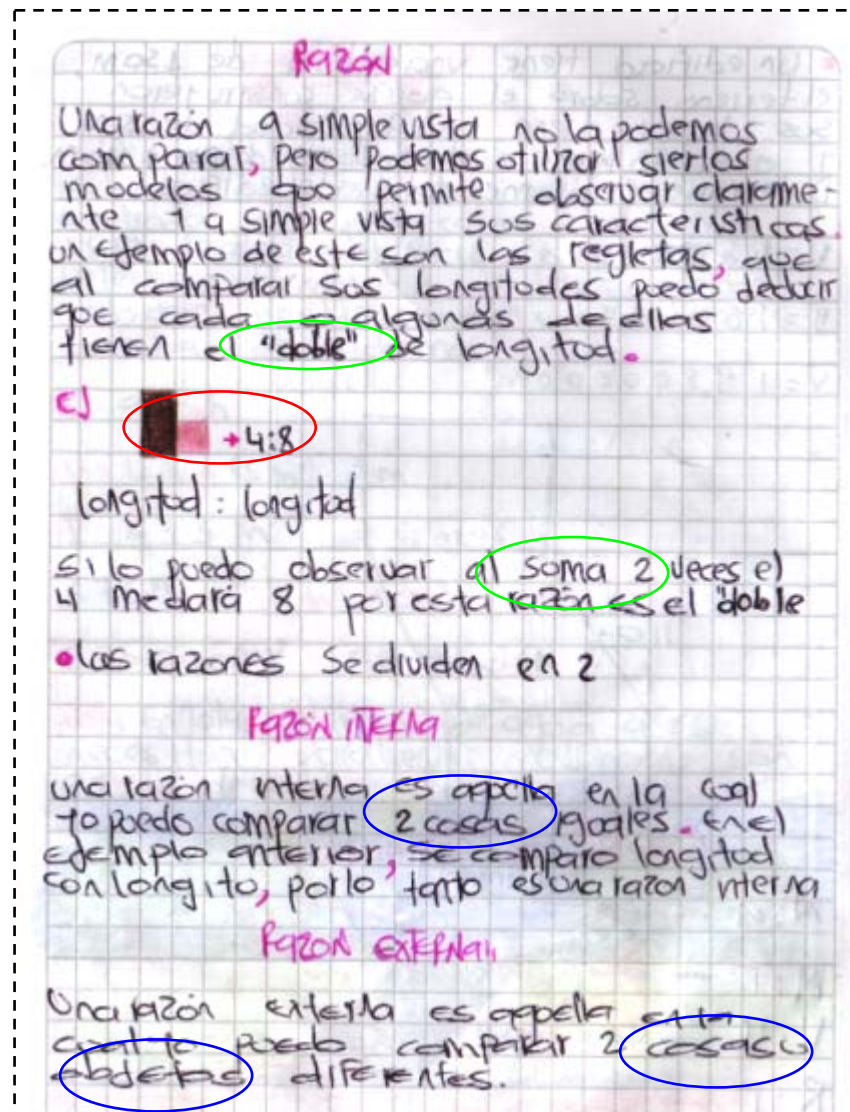 Razón
Una razón a simple vista no la podemos
comparar, pero podemos otilizar siertos
modelos quo permite obserugr claramme-
nte y a simple vista sus caracteristicas.
un ejemplo de este son las regletas, que
al comparar sus longitodes puedo deducir
que cada o algunas de ellas
tienen el "doble" de longitod.
c)
→ 4:8
longitod : longitod
si lo puedo observar al soma 2 veces el
4 medará 8 por esta razón es el "doble
• las razones se dividen en 2
Razón interna
una razón interna es aquella en la coal
yo puedo comparar 2 cosas igoales. en el
ejemplo anterior, se comparo longitod
con longito, por lo tanto es una razon interna
Razon externa
Una razón externa es aquella en la
cual yo puedo comparar 2 cosas u
objetos diferentes.